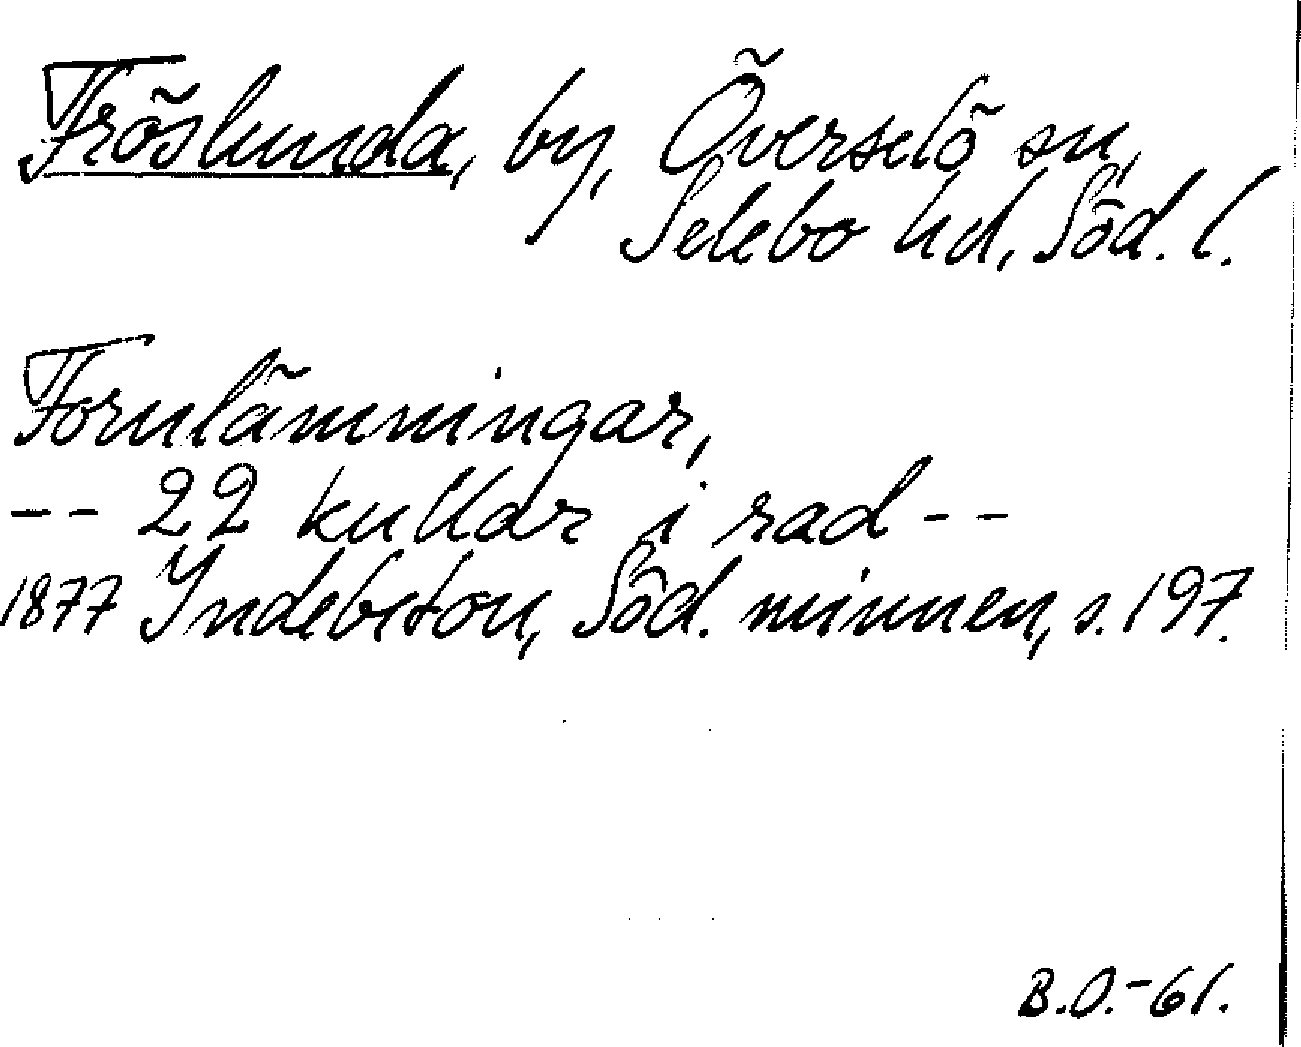 Fröslunda, by, Överselö sn,
Selebo hd, Söd. l.
Fornlämningar,
-- 22 kullar i rad --
1877 Indebetou, Söd. minnen, s. 197.
B.O.-61.